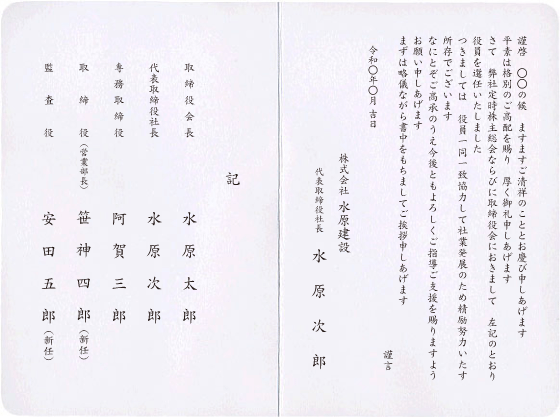 謹啓　〇〇の候　ますますご清祥のこととお慶び申しあげます
平素は格別のご高配を賜り　厚く御礼申しあげます
さて　弊社定時株主総会ならびに取締役会におきまして　左記のとおり
役員を選任いたしました
つきましては　役員一同一致協力して社業発展のため精励努力いたす
所存でございます
なにとぞご高承のうえ今後ともよろしくご指導ご支援を賜りますよう
お願い申しあげます
まずは略儀ながら書中をもちましてご挨拶申しあげます
謹言
令和〇年〇月吉日
株式会社 水原建設
代表取締役社長　水原次郎
記
取締役会長　水原太郎
代表取締役社長　水原次郎
専務取締役　阿賀三郎
取締役（営業部長）　笹神四郎（新任）
監査役　安田五郎（新任）